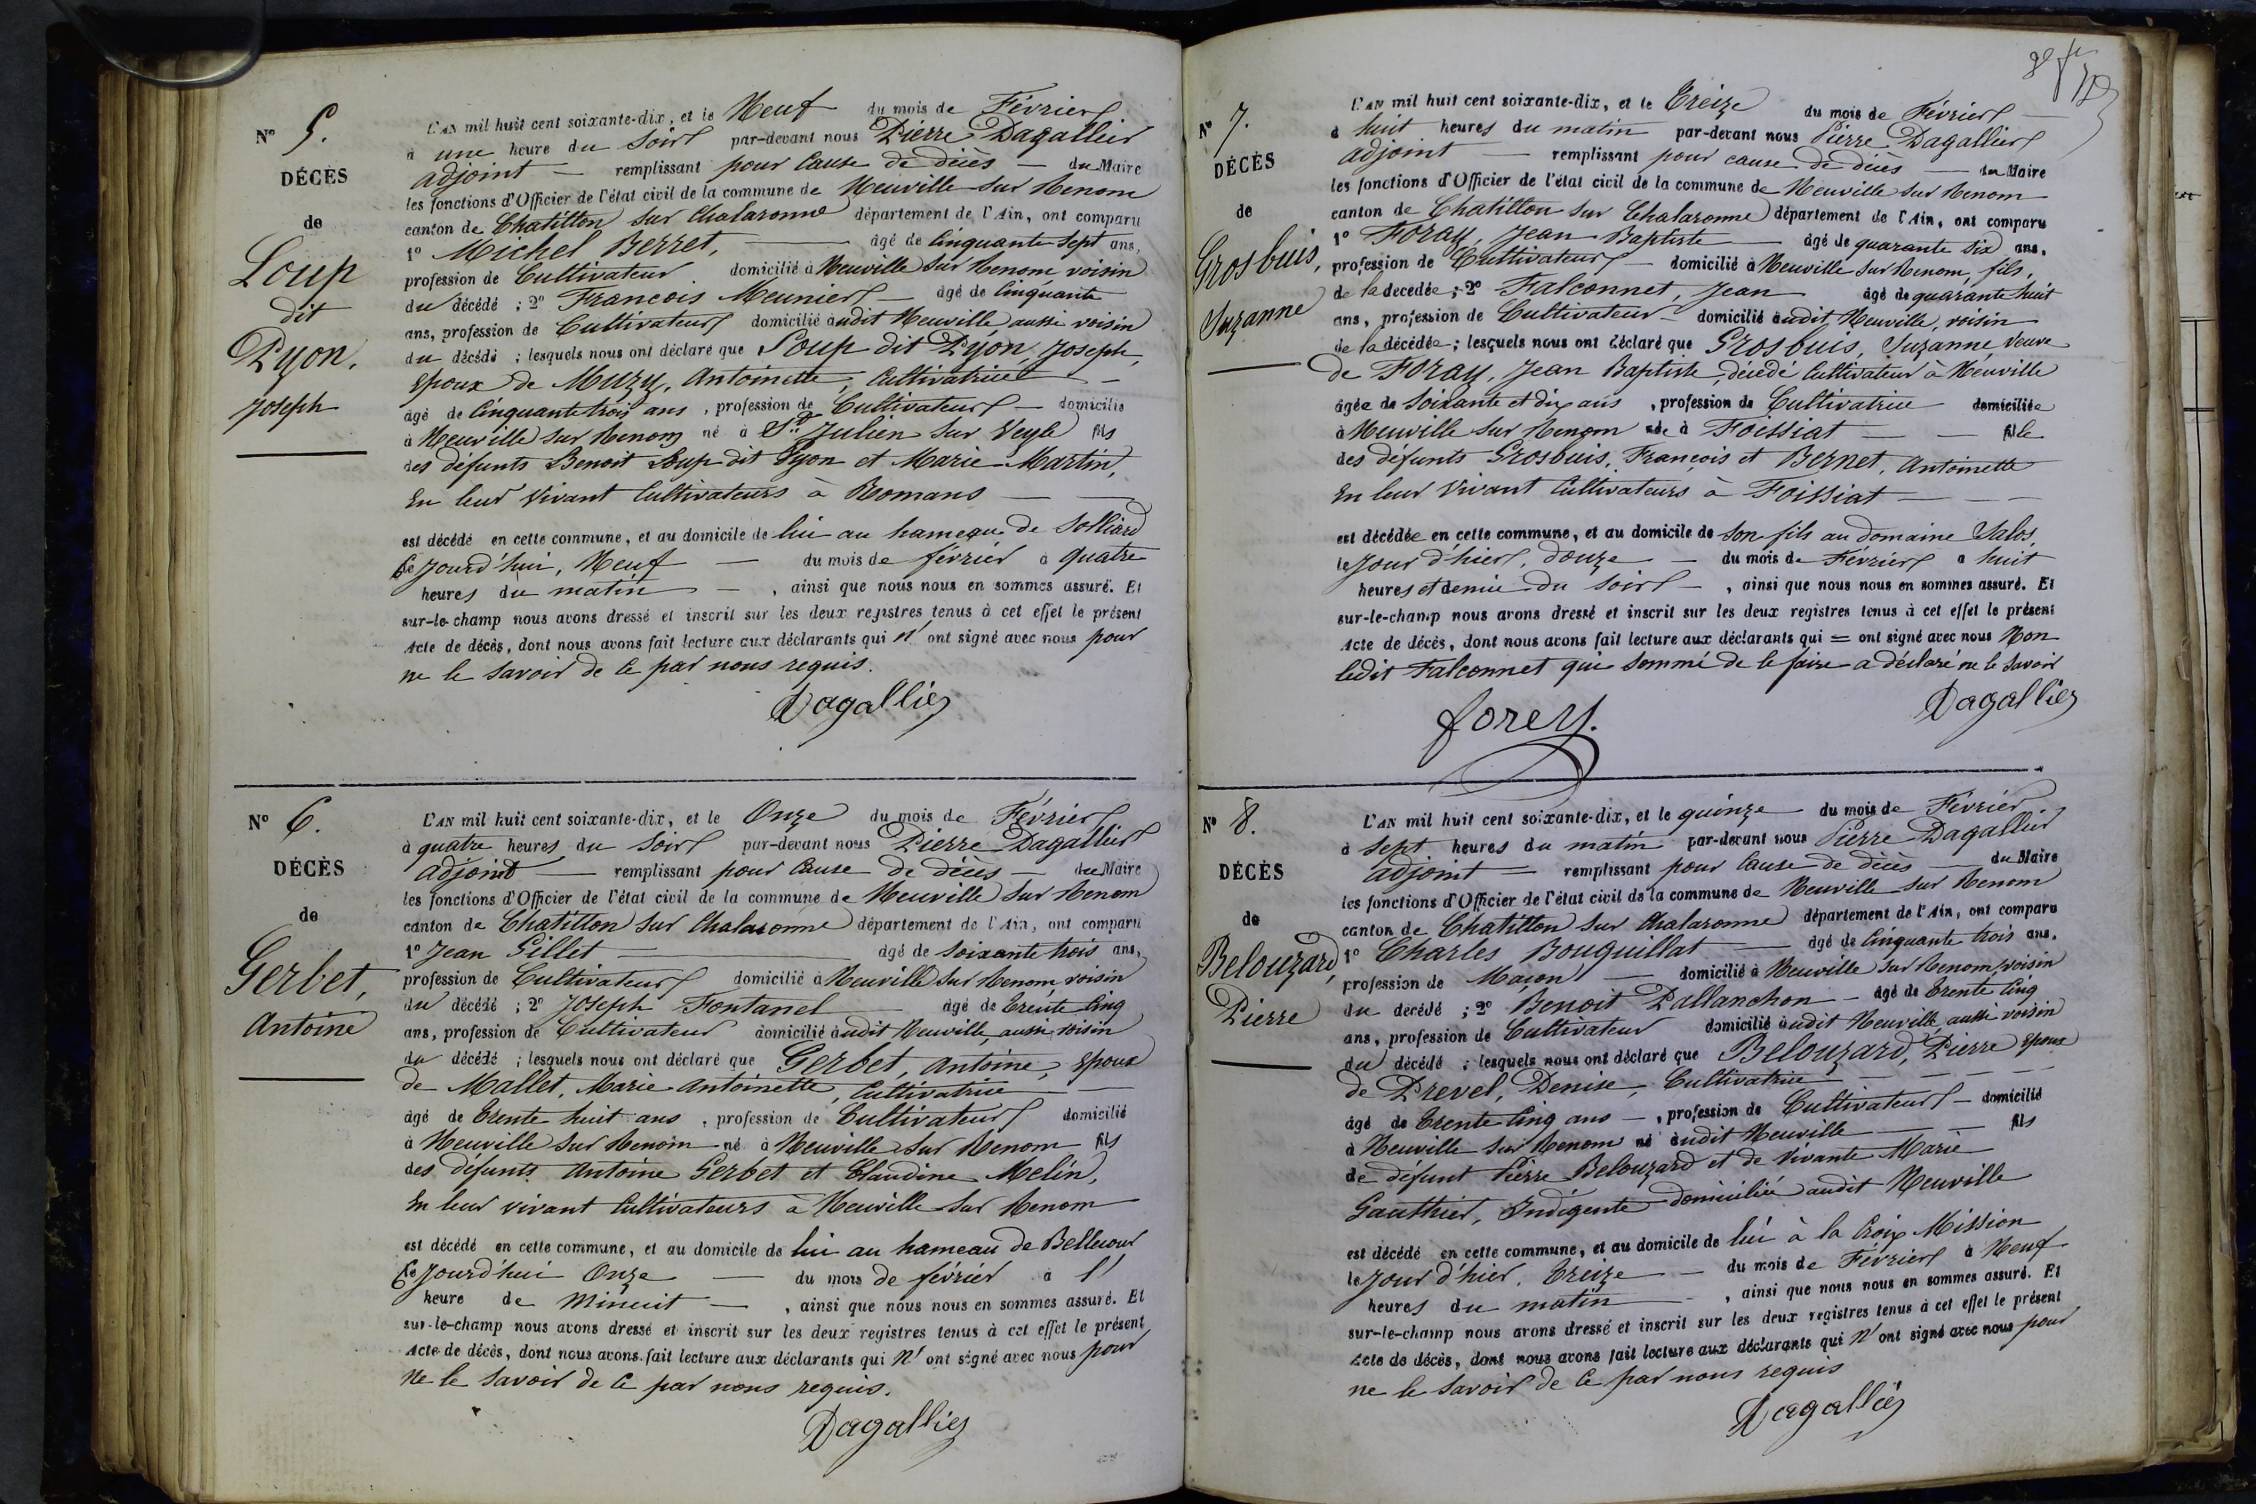 N° 5.
DÉCÈS
de
Loup
dit
Pyon,
Joseph
L'AN mil huit cent soixante-dix, et le Neuf du mois de Février
à une heure du Soir par-devant nous Pierre Dagallier
adjoint — remplissant pour Cause de décès — du Maire
les fonctions d'Officier de l'état civil de la commune de Neuville sur Renom
canton de Chatillon sur Chalaronne département de l'Ain, ont comparu
1° Michel Berret, — âgé de Cinquante Sept ans,
profession de Cultivateur domicilié à Neuville sur Renom voisin
du décédé ; 2° François Meunier — âgé de Cinquante
ans, profession de Cultivateur domicilié audit Neuville aussi voisin
du décédé ; lesquels nous ont déclaré que Loup dit Pyon, Joseph,
Epoux de Muzy, Antoinette, Cultivatrice —
âgé de Cinquante trois ans, profession de Cultivateur — domicilié
à Neuville sur Renom né à St Julien sur Veyle fils
des défunts Benoit Loup dit Pyon et Marie Martin,
En leur vivant Cultivateurs à Romans — —
est décédé en cette commune, et au domicile de lui au hameau de Solliard
Ce jourd'hui, Neuf — du mois de février à quatre
heures du matin — , ainsi que nous nous en sommes assuré. Et
sur-le-champ nous avons dressé et inscrit sur les deux registres tenus à cet effet le présent
Acte de décès, dont nous avons fait lecture aux déclarants qui n'ont signé avec nous pour
ne le savoir de ce par nous requis.
Dagallier
N° 6.
DÉCÈS
de
Gerbet,
Antoine
L'AN mil huit cent soixante-dix, et le Onze du mois de Février
à quatre heures du Soir par-devant nous Pierre Dagallier
adjoint — remplissant pour Cause de décès — du Maire
les fonctions d'Officier de l'état civil de la commune de Neuville sur Renom
canton de Chatillon sur Chalaronne département de l'Ain, ont comparu
1° Jean Gillet — âgé de soixante trois ans,
profession de Cultivateur domicilié à Neuville sur Renom, voisin
du décédé ; 2° Joseph Fontanel — âgé de Trente Cinq
ans, profession de Cultivateur domicilié audit Neuville, aussi voisin
du décédé ; lesquels nous ont déclaré que Gerbet, Antoine, Epoux
de Mallet, Marie Antoinette, Cultivatrice —
âgé de Trente huit ans, profession de Cultivateur domicilié
à Neuville sur Renom né à Neuville sur Renom fils
des défunts Antoine Gerbet et Claudine Melin,
En leur vivant Cultivateurs à Neuville sur Renom
est décédé en cette commune, et au domicile de lui au hameau de Bellecour
Ce jourd'hui Onze — du mois de février à l'
heure de Minuit — , ainsi que nous nous en sommes assuré. Et
sur-le-champ nous avons dressé et inscrit sur les deux registres tenus à cet effet le présent
Acte de décès, dont nous avons fait lecture aux déclarants qui n'ont signé avec nous pour
ne le savoir de ce par nous requis.
Dagallier
N° 7.
DÉCÈS
de
Grosbuis,
Suzanne
L'AN mil huit cent soixante-dix, et le Treize du mois de Février —
à huit heures du matin par-devant nous Pierre Dagallier
adjoint — remplissant pour cause de décès — du Maire
les fonctions d'Officier de l'état civil de la commune de Neuville sur Renom
canton de Chatillon sur Chalaronne département de l'Ain, ont comparu
1° Foray, Jean Baptiste — âgé de quarante six ans,
profession de Cultivateur — domicilié à Neuville sur Renom, fils,
de la décédée ; 2° Falconnet, Jean âgé de quarante huit
ans, profession de Cultivateur — domicilié audit Neuville, voisin
de la décédée ; lesquels nous ont déclaré que Grosbuis, Suzanne, Veuve
de Foray, Jean Baptiste, décédé Cultivateur à Neuville
âgée de Soixante et dix ans, profession de Cultivatrice domiciliée
à Neuville sur Renom née à Foissiat — — fille
des défunts Grosbuis, François et Bernet, Antoinette
En leur vivant Cultivateurs à Foissiat — — —
est décédée en cette commune, et au domicile de son fils au domaine Salos,
le jour d'hier, douze — du mois de Février à huit
heures et demie du Soir — , ainsi que nous nous en sommes assuré. Et
sur-le-champ nous avons dressé et inscrit sur les deux registres tenus à cet effet le présent
Acte de décès, dont nous avons fait lecture aux déclarants qui = ont signé avec nous Non
ledit Falconnet qui sommé de le faire a déclaré ne le savoir
forey.
Dagallier
N° 8.
DÉCÈS
de
Belouzard,
Pierre
L'AN mil huit cent soixante-dix, et le quinze du mois de Février
à Sept heures du matin par-devant nous Pierre Dagallier
adjoint — remplissant pour Cause de décès — du Maire
les fonctions d'Officier de l'état civil de la commune de Neuville sur Renom
canton de Chatillon sur Chalaronne département de l'Ain, ont comparu
1° Charles Bouquillat — âgé de Cinquante trois ans,
profession de Maçon — domicilié à Neuville sur Renom, voisin
du décédé ; 2° Benoit Pallanchon — âgé de Trente Cinq
ans, profession de Cultivateur domicilié audit Neuville aussi voisin
du décédé ; lesquels nous ont déclaré que Belouzard, Pierre Epoux
de Prevel, Denise, Cultivatrice — — —
âgé de Trente Cinq ans — , profession de Cultivateur — domicilié
à Neuville sur Renom né audit Neuville — — fils
de défunt Pierre Belouzard et de vivante Marie
Gauthier, Indigente domiciliée audit Neuville
est décédé en cette commune, et au domicile de lui à la Croix Mission
le jour d'hier, Treize — du mois de Février à Neuf
heures du matin — , ainsi que nous nous en sommes assuré. Et
sur-le-champ nous avons dressé et inscrit sur les deux registres tenus à cet effet le présent
Acte de décès, dont nous avons fait lecture aux déclarants qui n'ont signé avec nous pour
ne le savoir de ce par nous requis
Dagallier